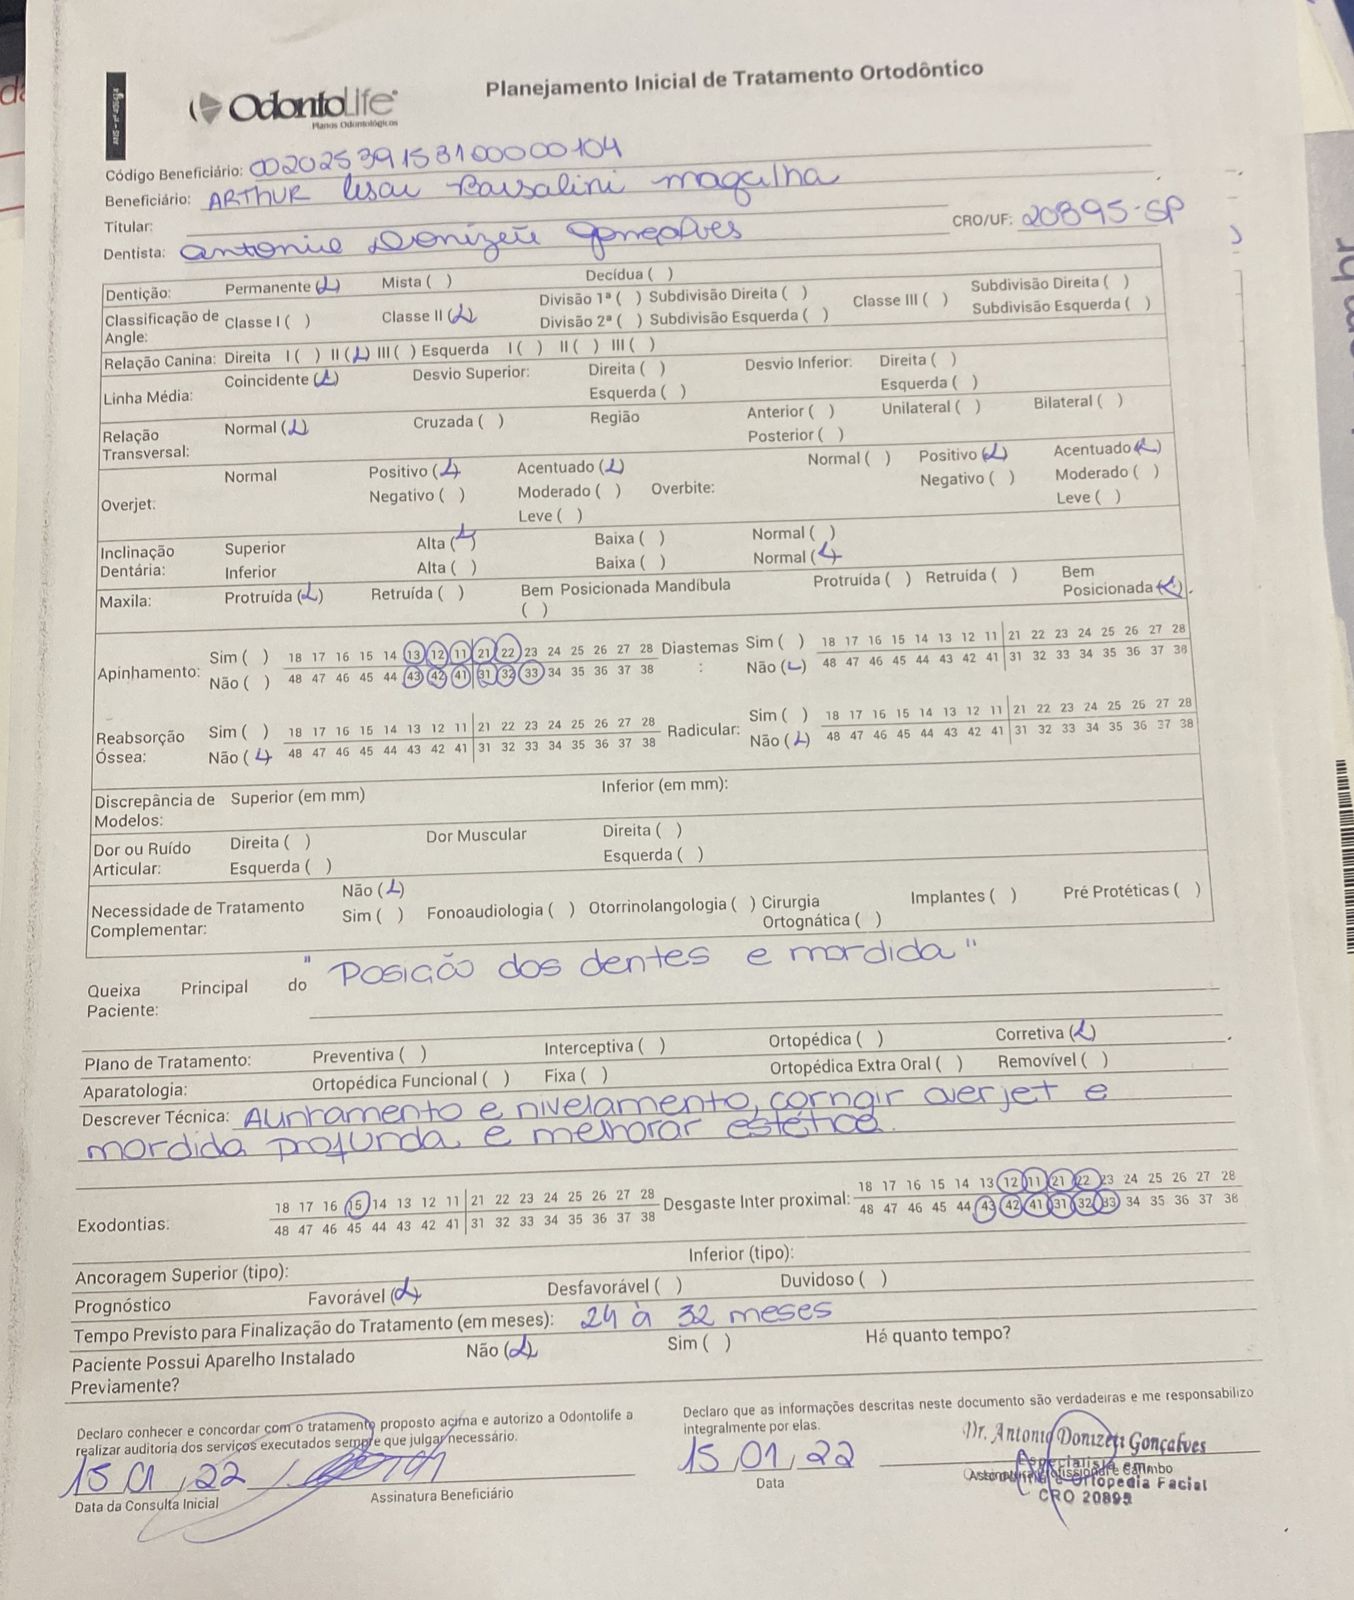 Planejamento Inicial de Tratamento Ortodôntico
OdontoLife
Planos Odontológicos
Código Beneficiário: 00202539153100000104
Beneficiário: ARTHUR Cesar Barsalini magalha
Titular:
CRO/UF: 20895-SP
Dentista: Antonio Donizeti Gonçalves
Dentição: Permanente (X) Mista ( ) Decídua ( )
Classificação de Angle: Classe I ( ) Classe II (X) Divisão 1ª ( ) Subdivisão Direita ( ) Classe III ( ) Subdivisão Direita ( )
Divisão 2ª ( ) Subdivisão Esquerda ( ) Subdivisão Esquerda ( )
Relação Canina: Direita I ( ) II (X) III ( ) Esquerda I ( ) II ( ) III ( )
Linha Média: Coincidente (X) Desvio Superior: Direita ( ) Desvio Inferior: Direita ( )
Esquerda ( ) Esquerda ( )
Relação Transversal: Normal (X) Cruzada ( ) Região Anterior ( ) Unilateral ( ) Bilateral ( )
Posterior ( )
Overjet: Normal Positivo (X) Acentuado (X) Overbite: Normal ( ) Positivo (X) Acentuado (X)
Negativo ( ) Moderado ( ) Negativo ( ) Moderado ( )
Leve ( ) Leve ( )
Inclinação Dentária: Superior Alta (X) Baixa ( ) Normal ( )
Inferior Alta ( ) Baixa ( ) Normal (X)
Maxila: Protruída (X) Retruída ( ) Bem Posicionada ( ) Mandíbula Protruída ( ) Retruída ( ) Bem Posicionada (X)
Apinhamento: Sim ( ) 18 17 16 15 14 13 12 11 21 22 23 24 25 26 27 28 Diastemas: Sim ( ) 18 17 16 15 14 13 12 11 21 22 23 24 25 26 27 28
Não ( ) 48 47 46 45 44 43 42 41 31 32 33 34 35 36 37 38 Não (X) 48 47 46 45 44 43 42 41 31 32 33 34 35 36 37 38
Reabsorção Óssea: Sim ( ) 18 17 16 15 14 13 12 11 21 22 23 24 25 26 27 28 Radicular: Sim ( ) 18 17 16 15 14 13 12 11 21 22 23 24 25 26 27 28
Não (X) 48 47 46 45 44 43 42 41 31 32 33 34 35 36 37 38 Não (X) 48 47 46 45 44 43 42 41 31 32 33 34 35 36 37 38
Discrepância de Modelos: Superior (em mm) Inferior (em mm):
Dor ou Ruído Articular: Direita ( ) Dor Muscular Direita ( )
Esquerda ( ) Esquerda ( )
Necessidade de Tratamento Complementar: Não (X)
Sim ( ) Fonoaudiologia ( ) Otorrinolangologia ( ) Cirurgia Ortognática ( ) Implantes ( ) Pré Protéticas ( )
Queixa Principal do Paciente: "Posição dos dentes e mordida"
Plano de Tratamento: Preventiva ( ) Interceptiva ( ) Ortopédica ( ) Corretiva (X)
Aparatologia: Ortopédica Funcional ( ) Fixa ( ) Ortopédica Extra Oral ( ) Removível ( )
Descrever Técnica: Alinhamento e nivelamento, corrigir overjet e
mordida profunda e melhorar estética.
Exodontias: 18 17 16 15 14 13 12 11 21 22 23 24 25 26 27 28 Desgaste Inter proximal: 18 17 16 15 14 13 12 11 21 22 23 24 25 26 27 28
48 47 46 45 44 43 42 41 31 32 33 34 35 36 37 38 48 47 46 45 44 43 42 41 31 32 33 34 35 36 37 38
Ancoragem Superior (tipo): Inferior (tipo):
Prognóstico Favorável (X) Desfavorável ( ) Duvidoso ( )
Tempo Previsto para Finalização do Tratamento (em meses): 24 à 32 meses
Paciente Possui Aparelho Instalado Previamente? Não (X) Sim ( ) Há quanto tempo?
Declaro conhecer e concordar com o tratamento proposto acima e autorizo a Odontolife a
realizar auditoria dos serviços executados sempre que julgar necessário.
15 01, 22
Data da Consulta Inicial Assinatura Beneficiário
Declaro que as informações descritas neste documento são verdadeiras e me responsabilizo
integralmente por elas.
15, 01, 22
Data
Dr. Antonio Donizeti Gonçalves
Especialista em
Ortopedia Facial
CRO 20895